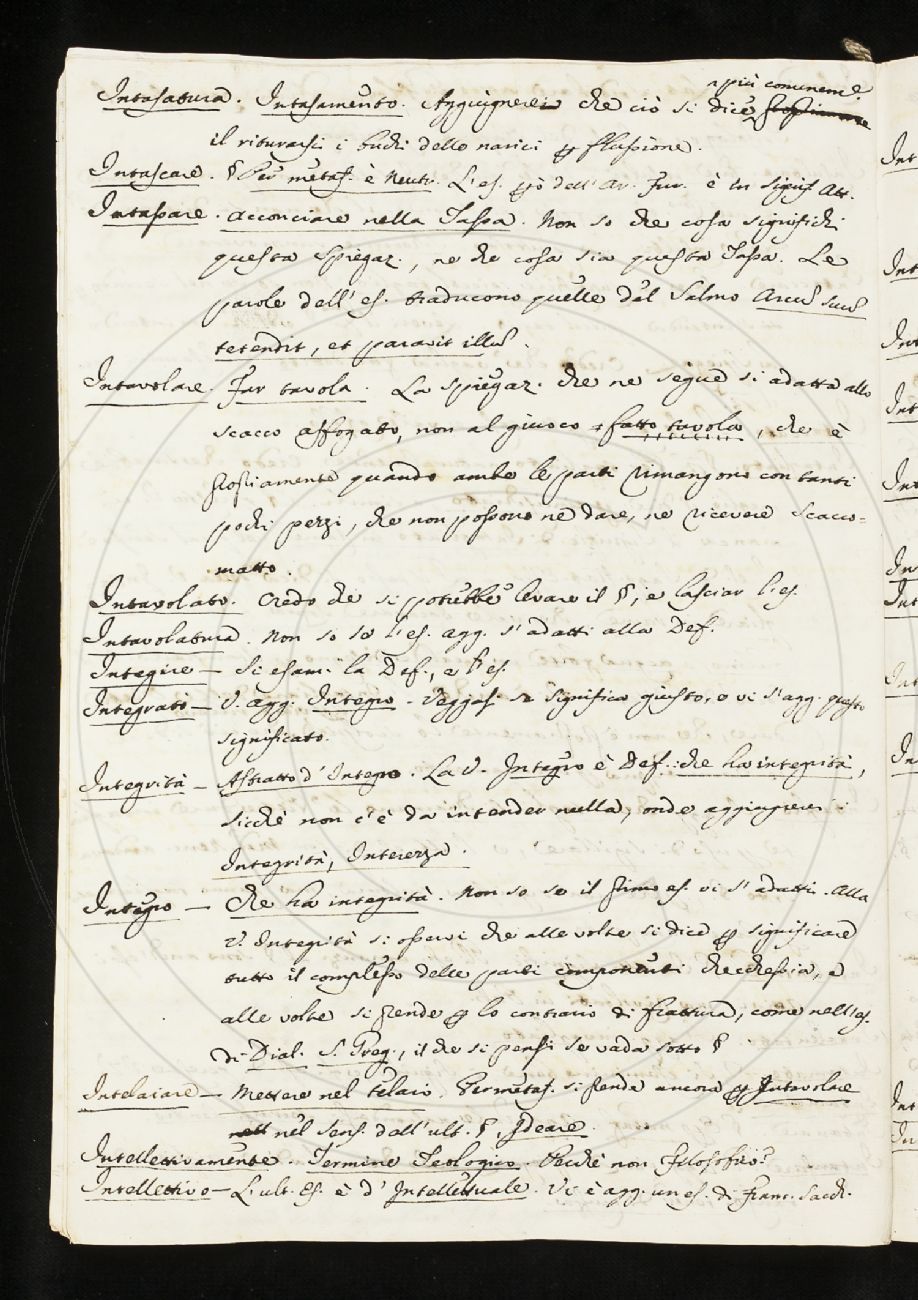 più comunem.e
Intasatura. Intasamento. Aggiugnerei che ciò si dice
il riturarsi i buchi delle narici p flussione.
Intascare. § Per metaf. è Neutr. L'es. pò dell'Ar. Fur. è in signif. Att.
Intassare. acconciare nella Tassa. Non so che cosa significhi
questa Spiegaz., ne che cosa sia questa Tassa. Le
parole dell'es. traducono quelle del Salmo Arcū suū
tetendit, et paravit illū.
Intavolare. Far tavola. La spiegaz. che ne segue si adatta allo
scacco affogato, non al giuoco fatto tavola, che è
quando ambe le parti rimangono con tanti
pochi pezzi, che non possono ne dare, ne ricevere scacco=
matto.
Intavolato. Credo che si potrebbe levare il §, e lasciar l'es.
Intavolatura. Non so se l'es. agg. s'adatti alla Def.
Integire — Si esami la Def., e l'es.
Integrato — V. agg. Integro. Veggasi se significa giusto, o vi s'agg. questo
significato.
Integrità — Astratto d'Integro. La V. Integro è Def. che ha integrità,
sicchè non c'è da intender nulla, onde aggiugnerei:
Integrità, Interezza.
Integro — Che ha integrità. Non so se il primo es. vi s'adatti. Alla
V. Integrità si osservi che alle volte si dice p significare
tutto il complesso delle parti componenti checchessia, e
alle volte si prende p lo contrario di frattura, come nell'es.
di Dial. S. Greg., il che si pensi se vada sotto §
Intelaiare — Mettere nel telaio. Per metaf. si prende ancora p Intavolare
nel sens. dell'ult. §, Ideare.
Intellettivamente. Termine Teologico. Perchè non Filosofico?
Intellettivo — L'ult. Es. è d'Intellettuale. Vi è agg. un es. di Franc. Sacch.
Int
Int
Int
Int
Int
Int
Int
Int
In
Int
In